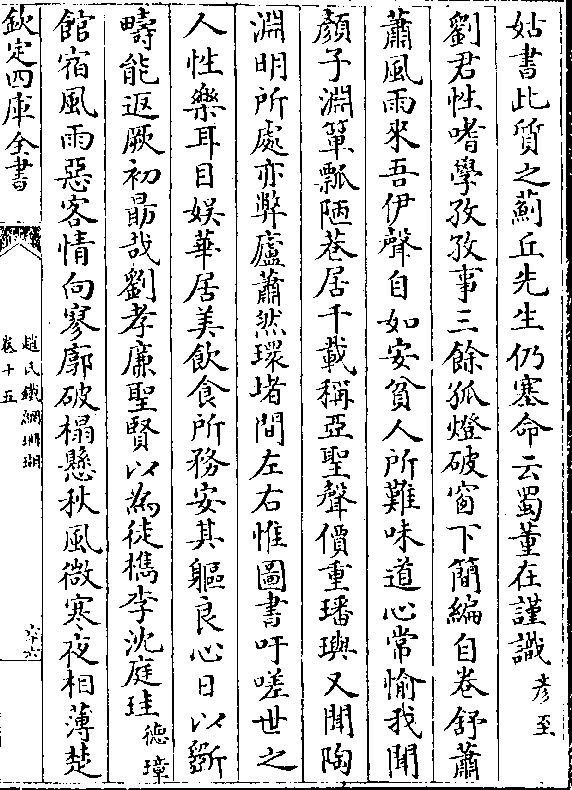 姑書此質之薊丘先生仍塞命云蜀董在謹識 彥至
劉君性嗜學孜孜事三餘孤燈破窗下簡編自卷舒蕭
蕭風雨來吾伊聲自如安貧人所難味道心常愉我聞
顏子淵簞瓢陋巷居千載稱亞聖聲價重璠璵又聞陶
淵明所處亦弊廬蕭然環堵間左右惟圖書吁嗟世之
人性樂耳目娛華居美飲食所務安其軀良心日以斵
疇能返厥初勗哉劉孝廉聖賢以為徒檇李沈庭珪 德璋
館宿風雨惡客情向寥廓破榻懸秋風微寒夜相薄楚
欽定四庫全書
趙氏鐵網珊瑚
卷十五
六十六